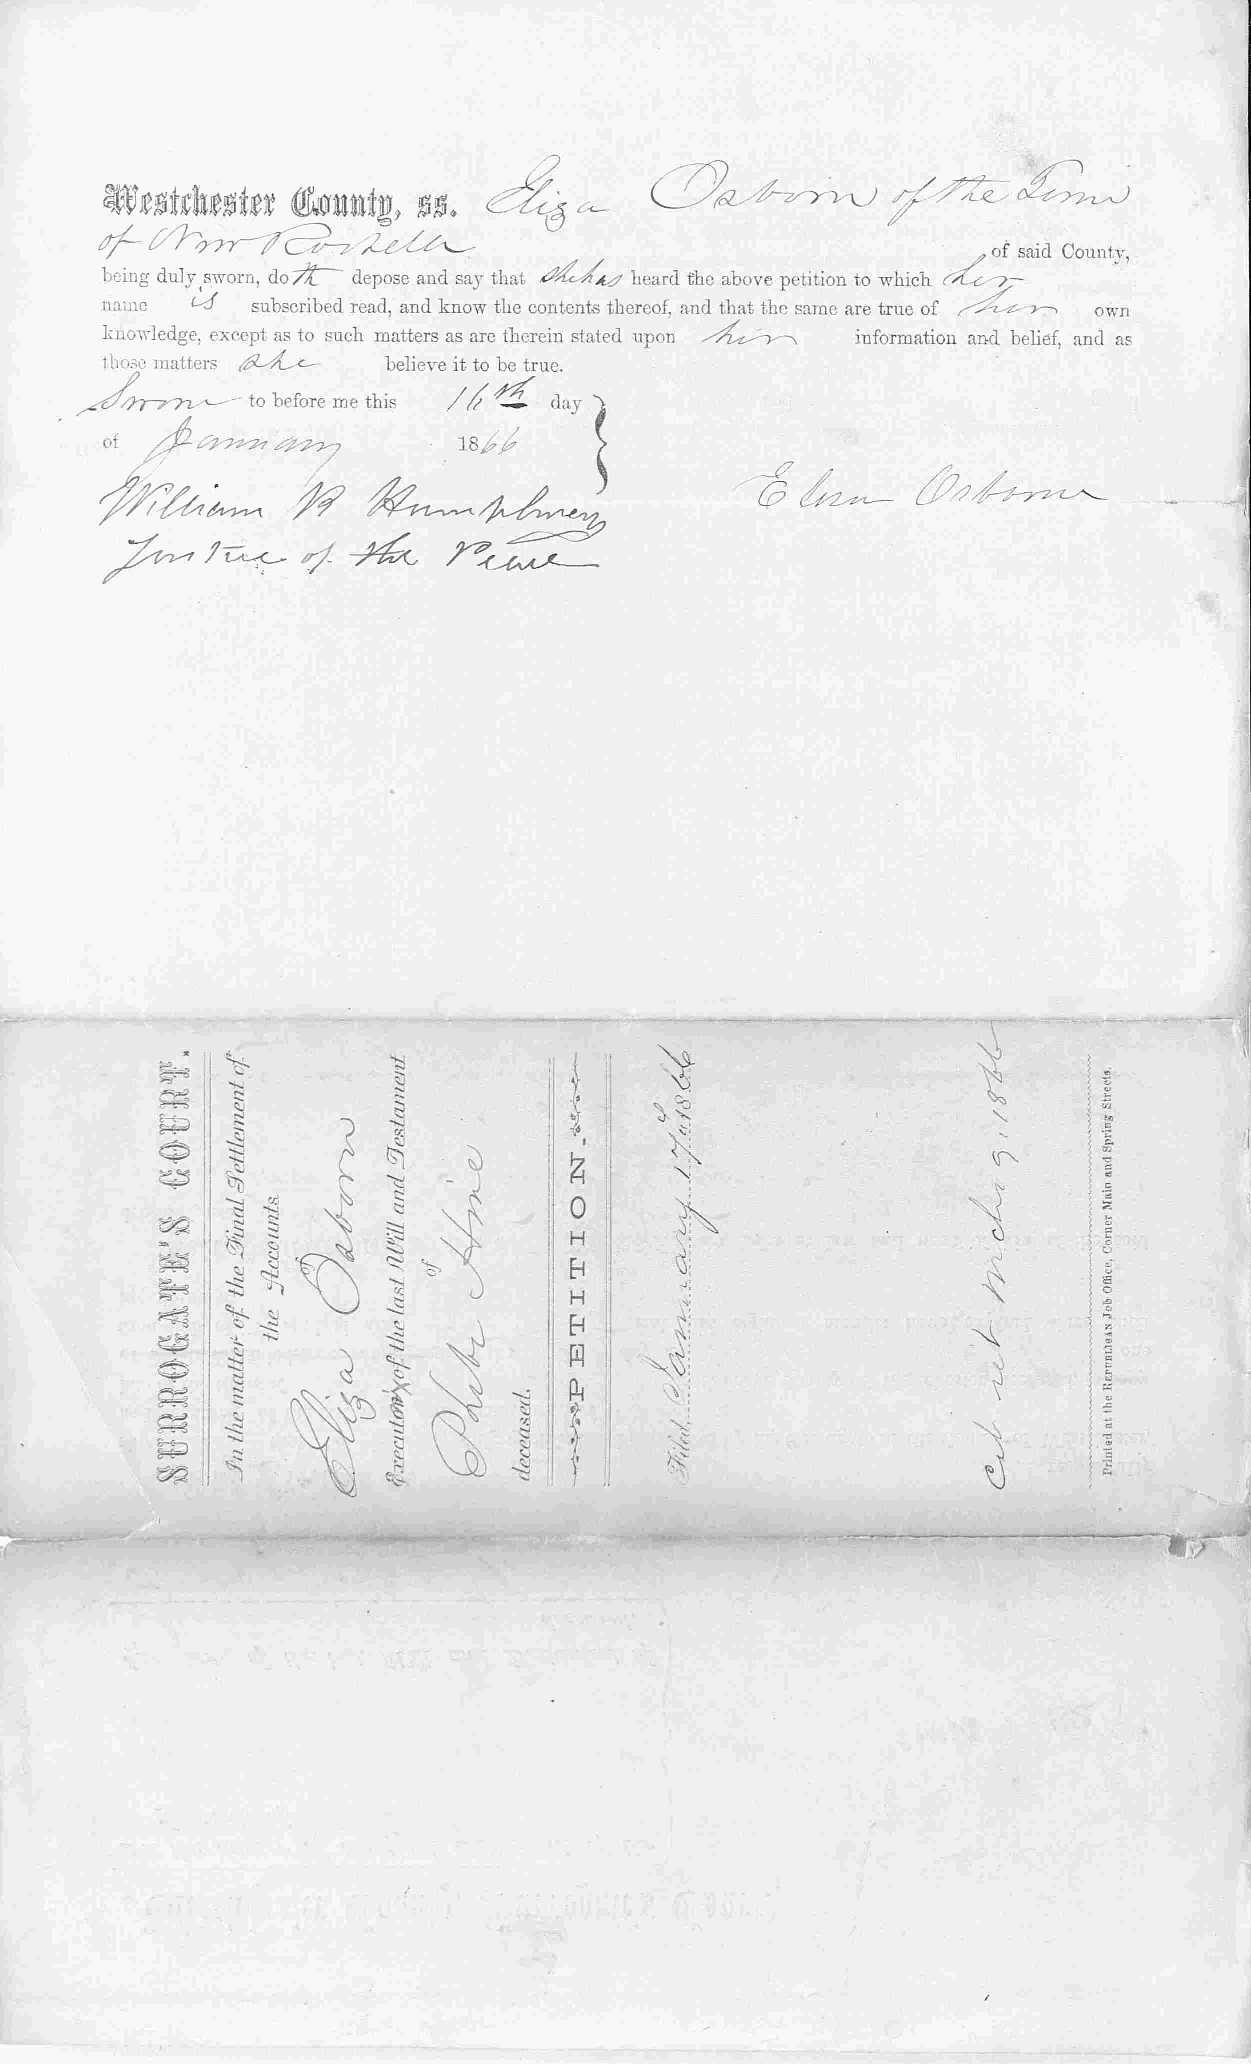 Westchester County, ss. Eliza Osborn of the Town
of New Rochelle of said County,
being duly sworn, doth depose and say that she has heard the above petition to which her
name is subscribed read, and know the contents thereof, and that the same are true of her own
knowledge, except as to such matters as are therein stated upon her information and belief, and as
those matters she believe it to be true.
Sworn to before me this 16th day
of January 1866
Eliza Osborne
William R Humphrey
Justice of the Peace
SURROGATE'S COURT.
In the matter of the Final Settlement of
the Accounts
of
Eliza Osborn
Executorx of the last Will and Testament
of
Phebe
deceased.
PETITION.
Filed, January 17th 1866
Cit ret Mch 9, 1866
Printed at the REPUBLICAN Job Office, Corner Main and Spring Streets.